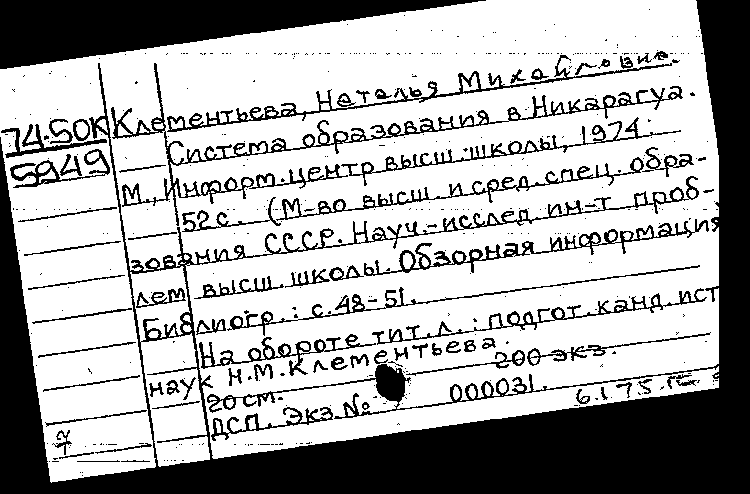 74-50К Клементьева, Наталья Михайловна.
5949 Система образования в Никарагуа.
М., Информ. центр высш. школы, 1974.
52с. (М-во высш. и сред. спец. обра-
зования СССР. Науч.-исслед. ин-т проб-
лем высш. школы. Обзорная информация
Библиогр.: с. 48-51.
На обороте тит. л.: подгот. канд. ист
наук Н.М. Клементьева.
20 см. 200 экз.
ДСП. Экз. № 000031.